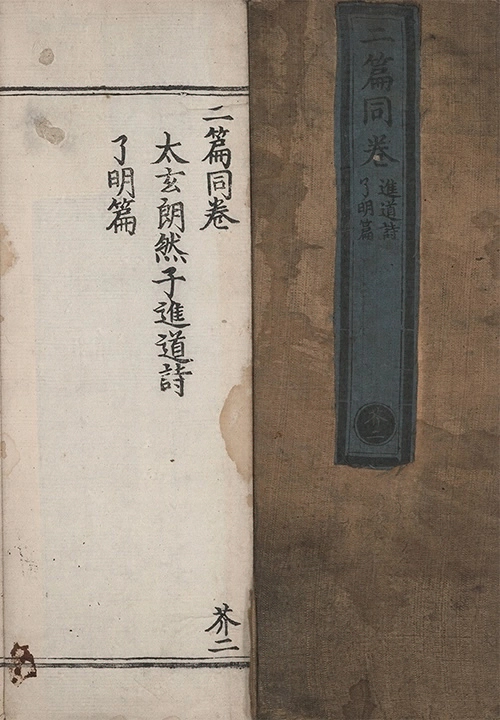 二篇同卷
進道詩
了明篇
芥二
二篇同卷
太玄朗然子進道詩
了明篇
芥二